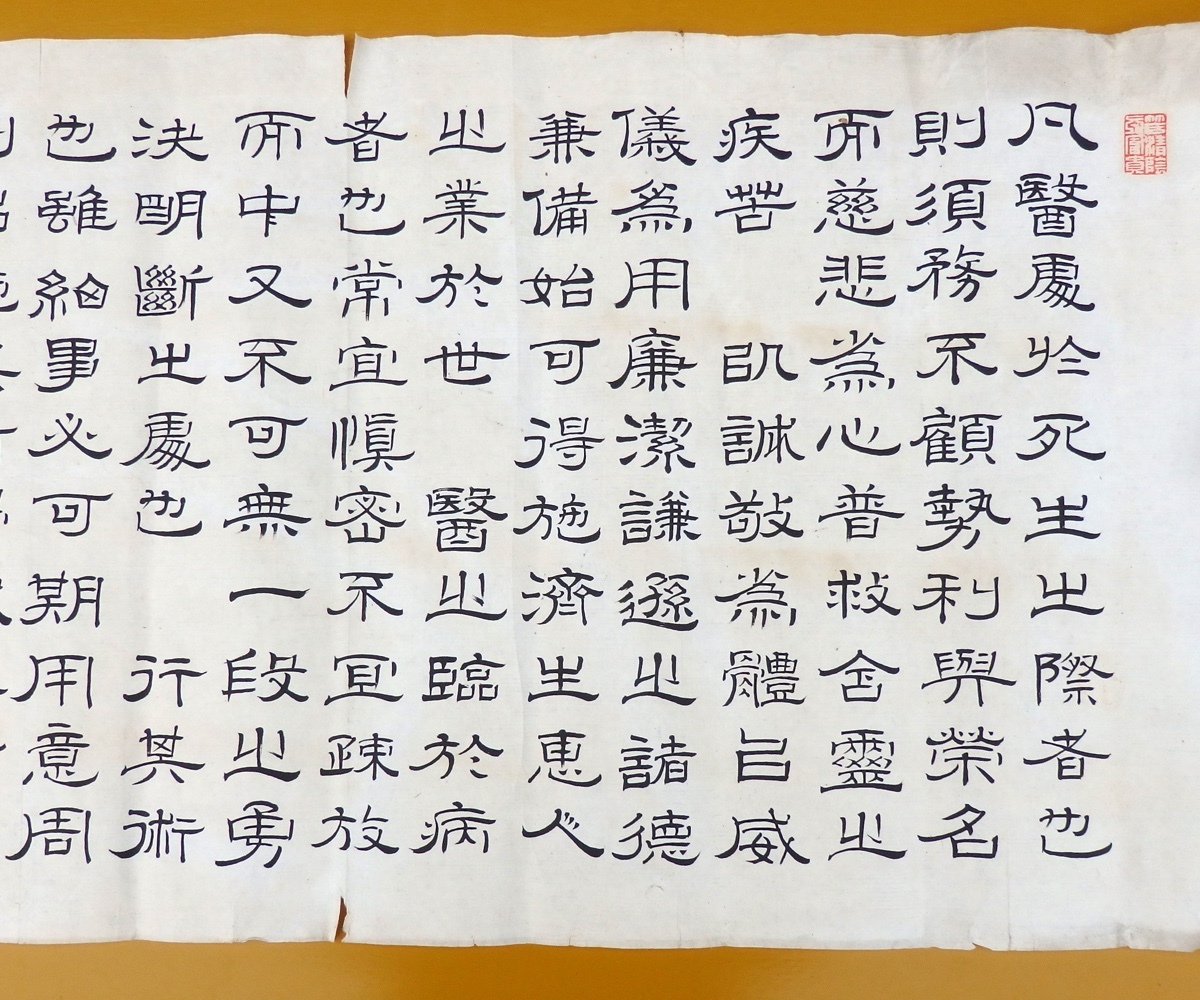 凡醫處於死生之際者也
則須務不顧勢利與榮名
而慈悲為心普救含靈之
疾苦　以誠敬為體㠯威
儀為用廉潔謙遜之諸德
兼備始可得施濟生惠人
之業於世　醫之臨於病
者也常宜慎密不宜疎放
而中又不可無一段之勇
決明斷之處也　行其術
也雖細事必可期用意周